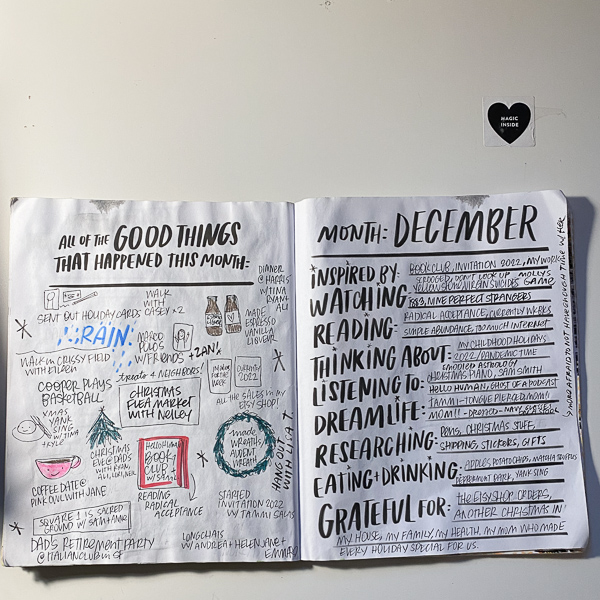 MAGIC
INSIDE
ALL OF THE GOOD THINGS
THAT HAPPENED THIS MONTH:
DINNER
@ HARRIS'
W/TINA
RYAN+
ALI
SENT OUT HOLIDAY CARDS
WALK
WITH
CASEY X2
MADE
ESPRESSO
VANILLA
LIQUEUR
RAIN
WALK IN CRISSY FIELD
WITH EILEEN
W/FRIENDS
treats 4 NEIGHBORS!
COOPER PLAYS
BASKETBALL
CHRISTMAS
FLEA MARKET
WITH NELLEY
ALL THE SALES IN MY
ETSY SHOP!
XMAS
YANK
SING
W/TINA
+KYLE
CHRISTMAS
EVE @ DADS
WITH RYAN,
ALI,
BOOK
CLUB
W/SAMI
made
WREATHS,
ADVENT
WREATH
HANG OUT
WITH LISA T
COFFEE DATE @
PINK OWL WITH JANE
READING
RADICAL
ACCEPTANCE
STARTED
INVITATION 2022
W/ TAMMI SALAS
SQUARE 1 IS SACRED
GROUND W/ SAMI+AMIR
DAD'S RETIREMENT PARTY
@ ITALIAN CLUB IN SF
LONGCHAIS
W/ ANDREA + HELEN JANE +
MONTH: DECEMBER
INSPIRED BY: BOOK CLUB, INVITATION 2022, MY WORK
WATCHING: SCROOGED, DON'T LOOK UP, MOLLYS GAME
YELLOWSTONE, VIRGIN SUICIDES
1883, NINE PERFECT STRANGERS
READING: RADICAL ACCEPTANCE, CURRENTLY WEEKS
SIMPLE ABUNDANCE, TOO MUCH INTERNET
THINKING ABOUT: MY CHILDHOOD HOLIDAYS,
2022/PANDEMIC TIME
LISTENING TO: EMBODIED ASTROLOGY
CHRISTMAS PIANO, SAM SMITH
HELLO HUMAN, GHOST OF A PODCAST
DREAMLIFE: TAMMI-TONGUE PIERCED MOM!
MOM!! -
RESEARCHING: PENS, CHRISTMAS STUFF,
SHIPPING, STICKERS, GIFTS
EATING+DRINKING: APPLES, POTATO CHIPS, MATCHA
PEPPERMINT BARK, YANK SING
GRATEFUL FOR: THE ETSY SHOP ORDERS,
ANOTHER CHRISTMAS IN
MY HOUSE, MY FAMILY, MY HEALTH, MY MOM WHO MADE
EVERY HOLIDAY SPECIAL FOR US.
AFRAID TO NOT HAVE ENOUGH TIME W/ HER